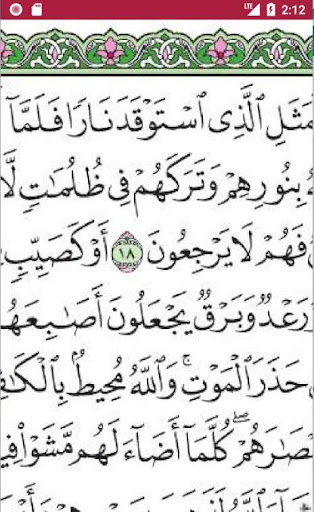 2:12
مَثَلِ ٱلَّذِى ٱسْتَوْقَدَ نَارًا فَلَمَّآ
بِنُورِهِمْ وَتَرَكَهُمْ فِى ظُلُمَٰتٍ لَّا
فَهُمْ لَا يَرْجِعُونَ ١٨ أَوْ كَصَيِّبٍ
رَعْدٌ وَبَرْقٌ يَجْعَلُونَ أَصَٰبِعَهُمْ
حَذَرَ ٱلْمَوْتِ ۚ وَٱللَّهُ مُحِيطٌۢ
كُلَّمَآ أَضَآءَ لَهُم مَّشَوْا۟ فِي